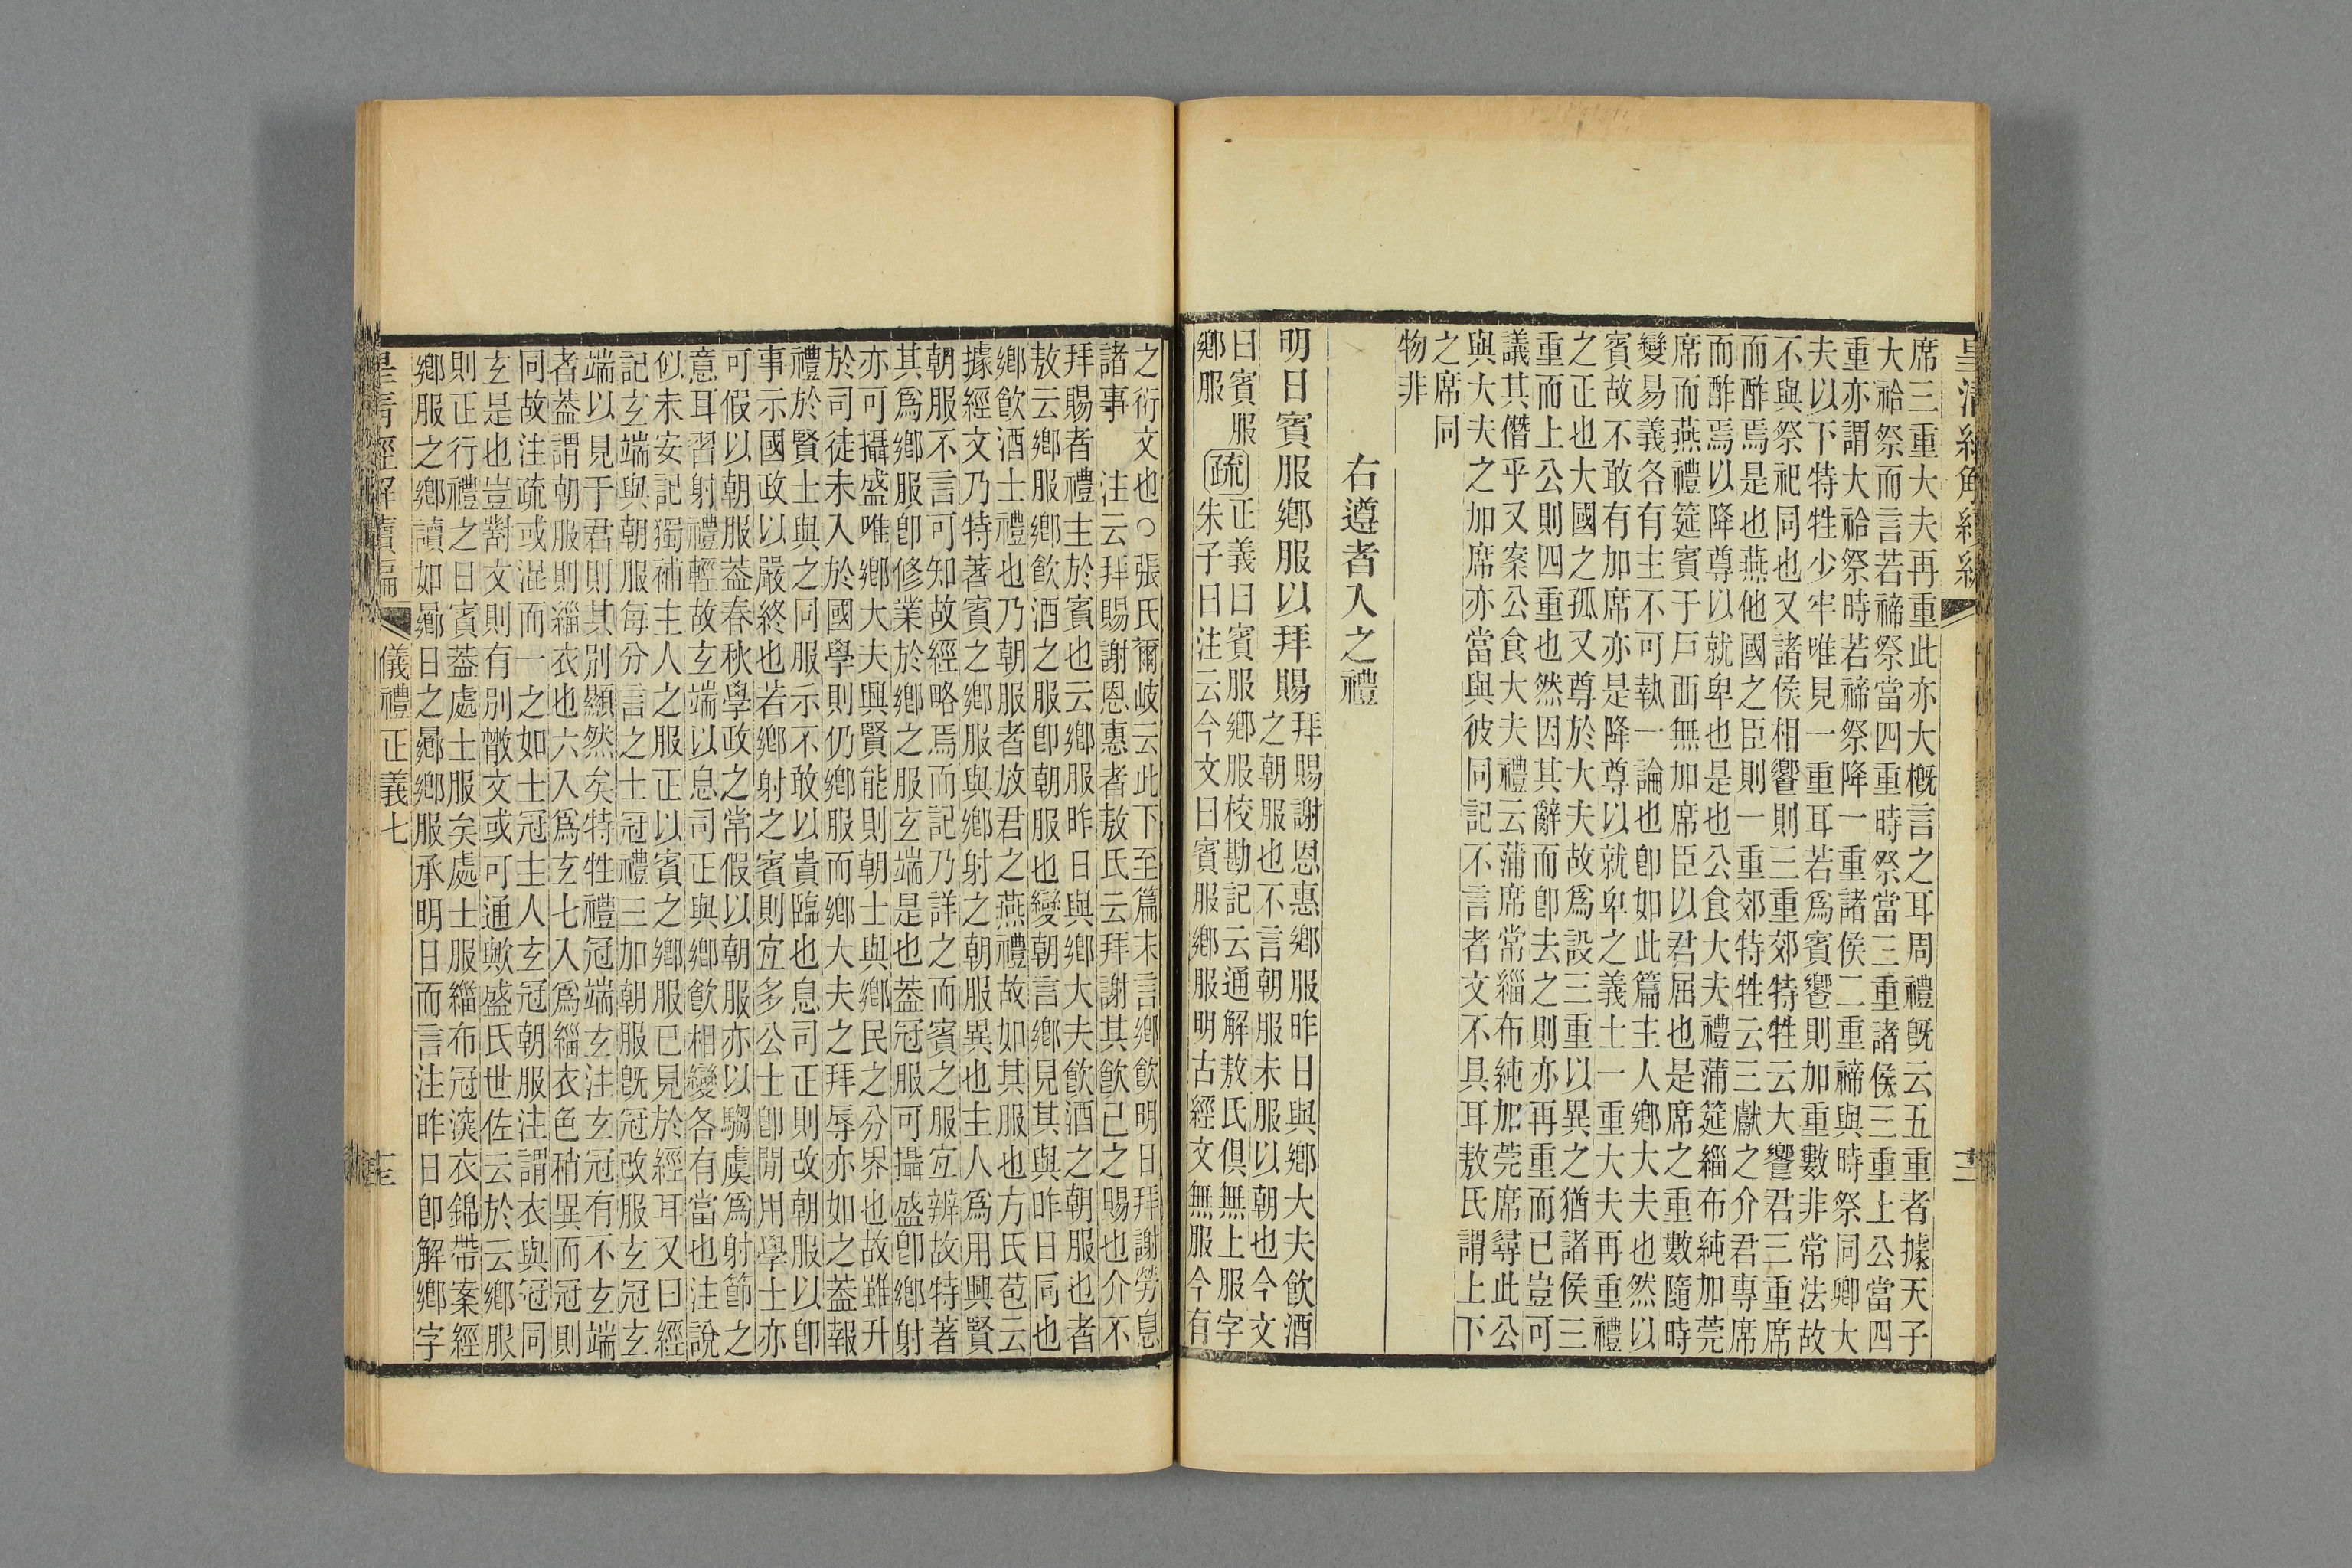 席三重大夫再重此亦大概言之耳周禮既云五重者據天子
大祫祭而言若禘祭當四重時祭當三重諸侯三重上公當四
重亦謂大祫祭時若禘祭降一重諸侯二重禘與時祭同卿大
夫以下特牲少牢唯見一重耳若爲賓饗則加重數非常法故
不與祭祀同也又諸侯相饗則三重郊特牲云大饗君三重席
而酢焉是也燕他國之臣則一重郊特牲云三獻之介君專席
而酢焉以降尊以就卑也是也公食大夫禮蒲筵緇布純加莞
席而燕禮筵賓于戶西無加席臣以君屈也是席之重數隨時
變易義各有主不可執一論也卽如此篇主人鄉大夫也然以
賓故不敢有加席亦是降尊以就卑之義士一重大夫再重禮
之正也大國之孤又尊於大夫故爲設三重以異之猶諸侯三
重而上公則四重也然因其辭而卽去之則亦再重而已豈可
議其僭乎又案公食大夫禮云蒲席常緇布純加莞席尋此公
與大夫之加席亦當與彼同記不言者文不具耳敖氏謂上下
之席同
物非
右遵者入之禮
明日賓服鄉服以拜賜
拜賜謝恩惠鄉服昨日與鄉大夫飲酒
之朝服也不言朝服未服以朝也今文
曰賓服
鄉服
疏
正義曰賓服鄉服校勘記云通解敖氏俱無上服字
朱子曰注云今文曰賓服鄉服明古經文無服今有
之衍文也○張氏爾岐云此下至篇末言鄉飮明日拜謝勞息
諸事 注云拜賜謝恩惠者敖氏云拜謝其飮己之賜也介不
拜賜者禮主於賓也云鄉服昨日與鄉大夫飮酒之朝服也者
敖云鄉服鄉飮酒之服卽朝服也變朝言鄉見其與昨日同也
鄉飮酒士禮也乃朝服者放君之燕禮故如其服也方氏苞云
據經文乃特著賓之鄉服與鄉射之朝服異也主人爲用興賢
朝服不言可知故經略焉而記乃詳之而賓之服宜辨故特著
其爲鄉服卽修業於鄉之服玄端是也葢冠服可攝盛卽鄉射
亦可攝盛唯鄉大夫興賢能則朝士與鄉民之分界也故雖升
於司徒未入於國學則仍鄉服而鄉大夫之拜辱亦如之葢報
禮於賢士與之同服示不敢以貴臨也息司正則改朝服以卽
事示國政以嚴終也若鄉射之賓則宜多公士卽閒用學士亦
可假以朝服葢春秋學政之常假以朝服亦以騶虞爲射節之
意耳習射禮輕故玄端以息司正與鄉飮相變各有當也注說
似未安記獨補主人之服正以賓之鄉服已見於經耳又曰經
記玄端與朝服每分言之士冠禮三加朝服旣冠改服玄冠玄
端以見于君則其別顯然矣特牲禮冠端玄注玄冠有不玄端
者葢謂朝服則緇衣也六入爲玄七入爲緇衣色稍異而冠則
同故注疏或混而一之如士冠主人玄冠朝服注謂衣與冠同
玄是也豈劄文則有別幑文或可通歟盛氏世佐云於云鄉服
則正行禮之日賓葢處士服矣處士服緇布冠㳬衣錦帶案經
鄉服之鄉讀如曏鄉日之曏鄉服承明日而言注昨日卽解鄉字
皇清經解續編
儀禮正義七